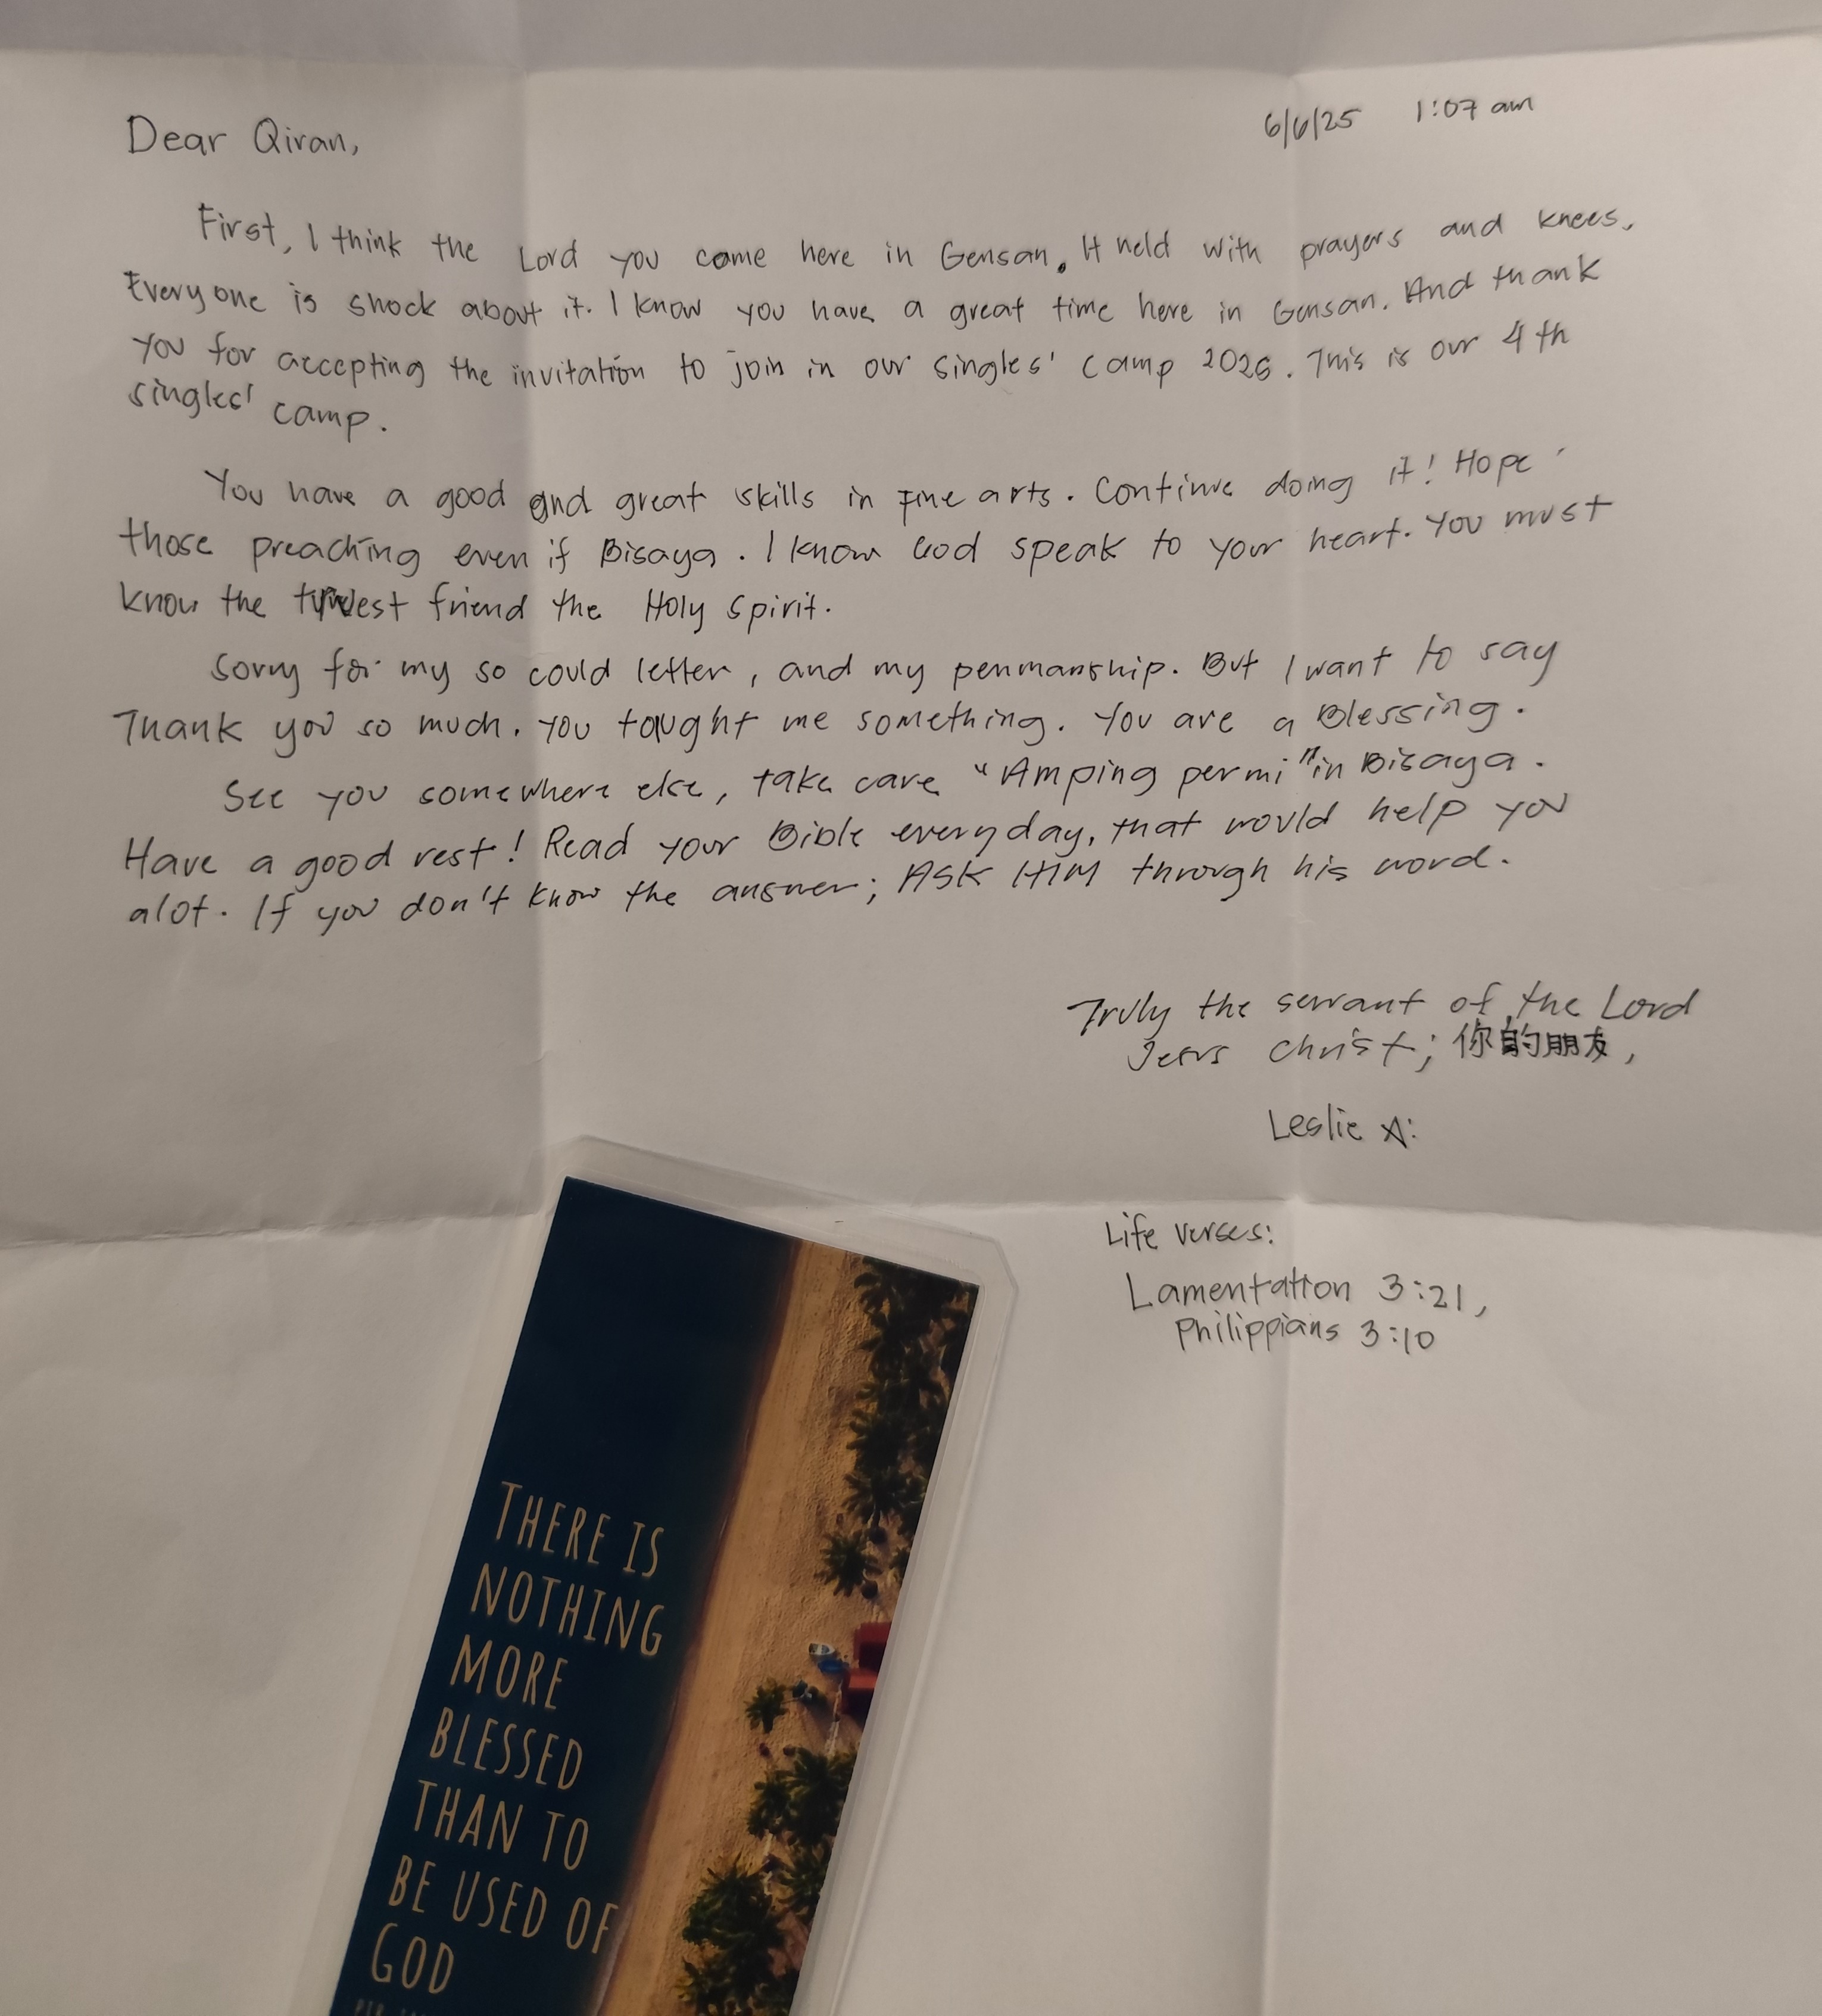 6/6/25 1:07 am
Dear Qiran,
First, I think the Lord you come here in Gensan. It held with prayers and knees.
Everyone is shock about it. I know you have a great time here in Gensan. And thank
you for accepting the invitation to join in our singles' camp 2025. This is our 4th
singles' camp.
You have a good and great skills in Fine arts. Continue doing it! Hope
those preaching even if Bisaya. I know God speak to your heart. You must
know the friend the Holy Spirit.
Sorry for my so could letter, and my penmanship. But I want to say
Thank you so much. You taught me something. You are a Blessing.
See you somewhere else, take care "Amping permi" in Bisaya.
Have a good rest! Read your Bible everyday, that would help you
alot. If you don't know the answer; ASK HIM through his word.
Truly the servant of the Lord
Jesus Christ; 你的朋友,
Leslie A.
Life verses:
Lamentation 3:21,
Philippians 3:10
THERE IS
NOTHING
MORE
BLESSED
THAN TO
BE USED OF
GOD